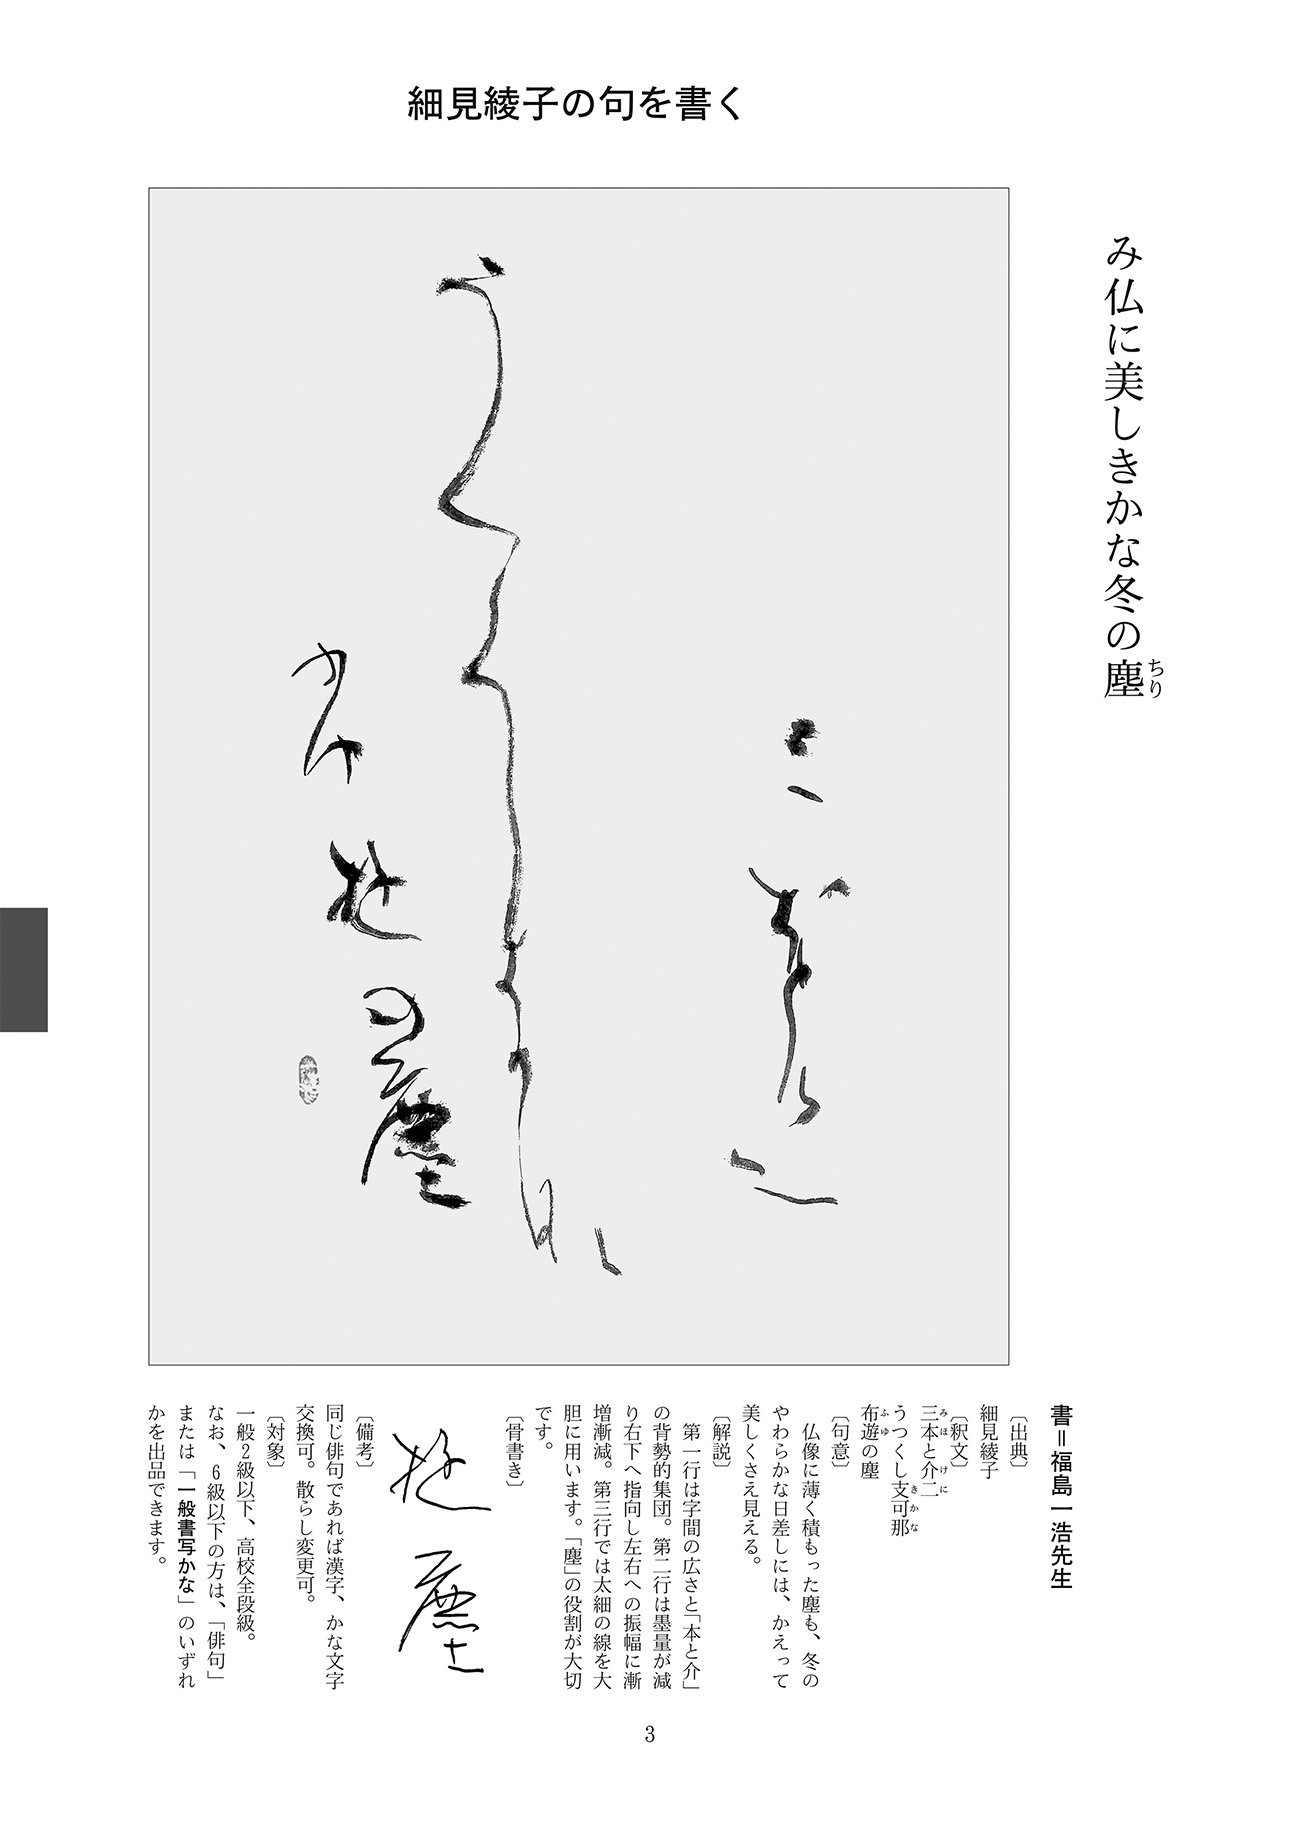 細見綾子の句を書く
み仏に美しきかな冬の塵
ちり
書＝福島一浩先生
〔出典〕
細見綾子
〔釈文〕
三本と介二
みほ けに
うつくし支可那
きかな
布遊の塵
ふゆ
〔句意〕
仏像に薄く積もった塵も、冬の
やわらかな日差しには、かえって
美しくさえ見える。
〔解説〕
第一行は字間の広さと「本と介」
の背勢的集団。第二行は墨量が減
り右下へ指向し左右への振幅に漸
増漸減。第三行では太細の線を大
胆に用います。「塵」の役割が大切
です。
〔骨書き〕
遊 塵
〔備考〕
同じ俳句であれば漢字、かな文字
交換可。散らし変更可。
〔対象〕
一般2級以下、高校全段級。
なお、6級以下の方は、「俳句」
または「一般書写かな」のいずれ
かを出品できます。
三本と介二
うつくし支可那
布遊の塵
3